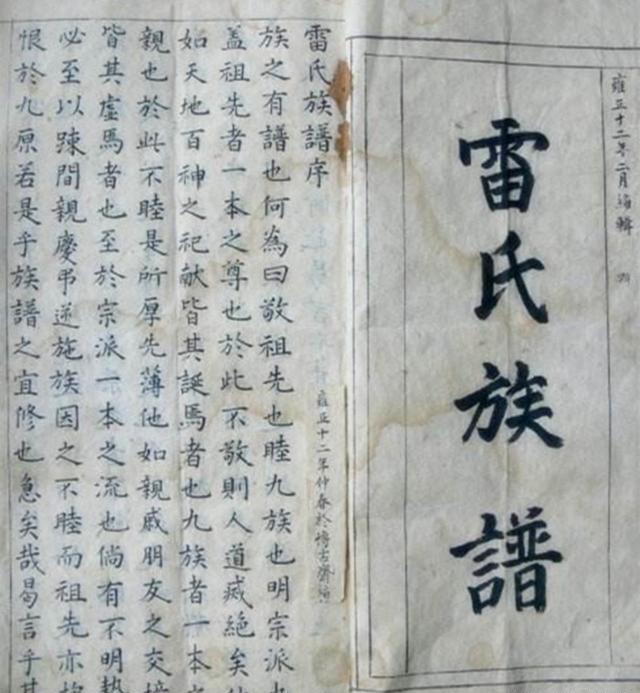 雍正十二年二月編輯
雷氏族譜
雷氏族譜序
族之有譜也何為曰敬祖先也睦九族也明宗派也
蓋祖先者一本之尊也於此不敬則人道烕絕矣
如天地百神之祀献皆其誕焉者也九族者一本
親也於此不睦是所厚先薄他如親戚朋友之交
皆其虛焉者也至於宗派一本之流也倘有不明
必至以踈間親慶弔逆施族因之不睦而祖先亦
恨於九原若是乎族譜之宜修也急矣哉曷言乎其
雍正十二年仲春於